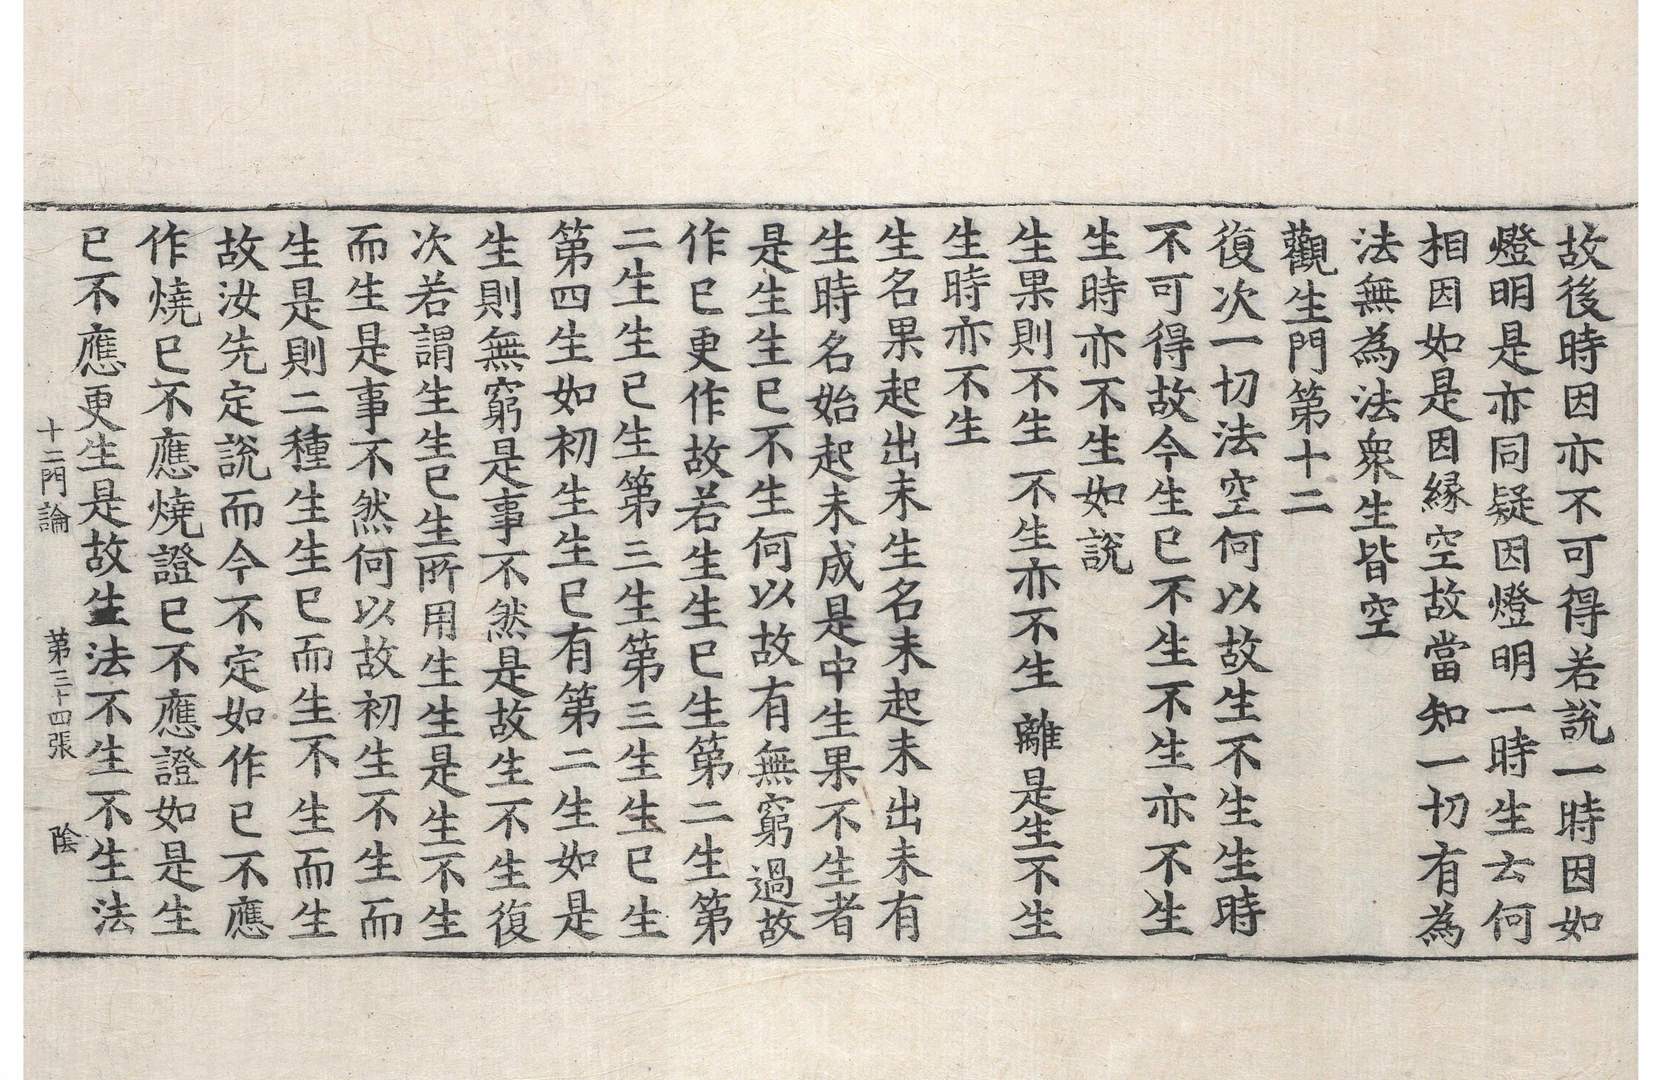 故後時因亦不可得若說一時因如
燈明是亦同疑因燈明一時生云何
相因如是因緣空故當知一切有為
法無為法衆生皆空
觀生門第十二
復次一切法空何以故生不生生時
不可得故今生已不生不生亦不生
生時亦不生如說
生果則不生 不生亦不生 離是生不生
生時亦不生
生名果起出未生名未起未出未有
生時名始起未成是中生果不生者
是生生已不生何以故有無窮過故
作已更作故若生生已生第二生第
二生生已生第三生第三生生已生
第四生如初生生已有第二生如是
生則無窮是事不然是故生不生復
次若謂生生已生所用生生是生不生
而生是事不然何以故初生不生而
生是則二種生生已而生不生而生
故汝先定說而今不定如作已不應
作燒已不應燒證已不應證如是生
已不應更生是故生法不生不生法
十二門論 第三十四張 陰